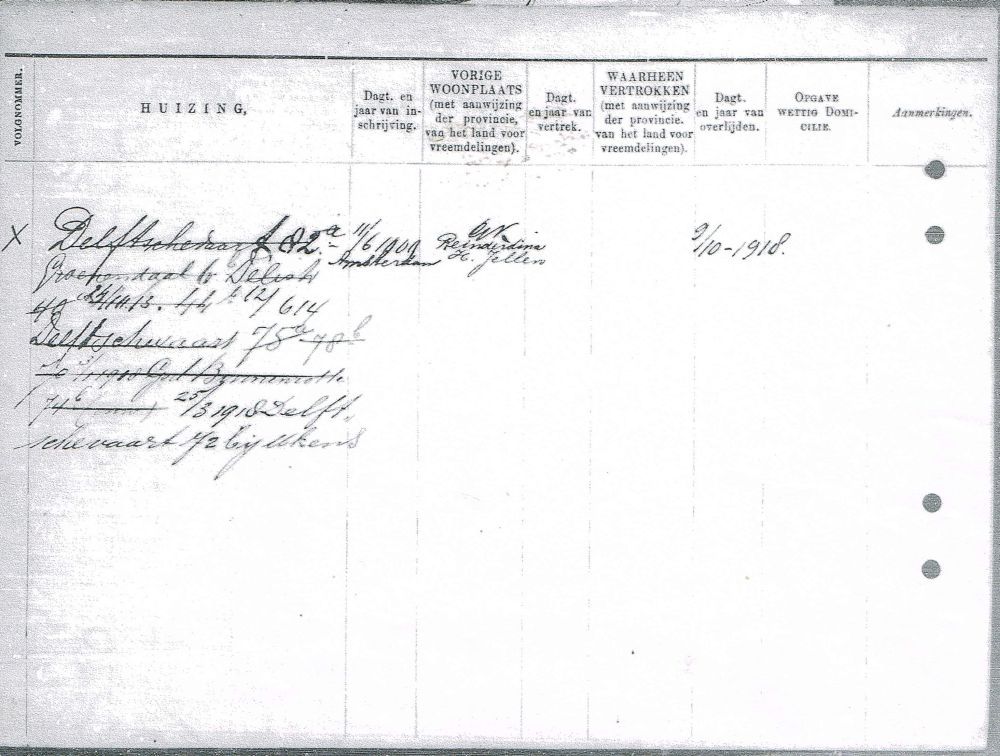 VOLGNOMMER.
HUIZING,
Dagt. en
jaar van in-
schrijving.
VORIGE
WOONPLAATS
(met aanwijzing
der provincie,
van het land voor
vreemdelingen).
Dagt.
en jaar van
vertrek.
WAARHEEN
VERTROKKEN
(met aanwijzing
der provincie.
van het land voor
vreemdelingen).
Dagt.
en jaar van
overlijden.
OPGAVE
WETTIG DOMI-
CILIE.
Aanmerkingen.
X Delftschevaart 82a 11/6 1900 9/10-1918.
Amsterdam Reinderdina
H. Jellen
Groenendaal
40 24/10.13. 44 b 12/614
Delftschevaart 75a 78b
1918 Gd Binnenrotte
74b 25/3 1918 Delft
schevaart 72 bij Ukens